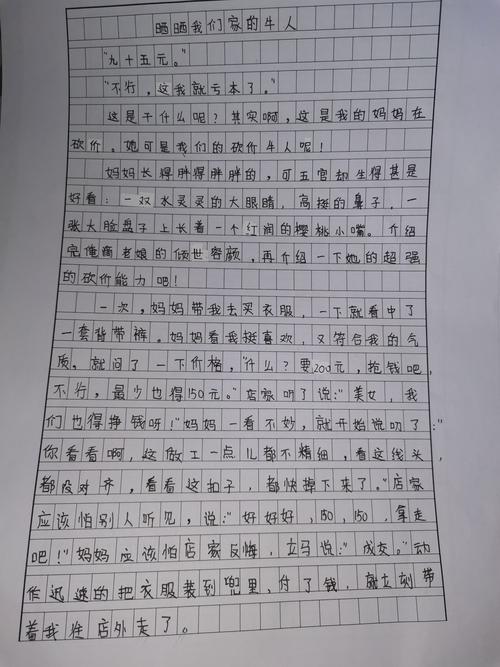 晒晒我们家的牛人
"九十五元。"
"不行,这我就亏本了。"
这是干什么呢?其实啊,这是我的妈妈在
砍价。她可是我们的砍价牛人呢!
妈妈长得胖得胖胖的,可五官却生得甚是
好看:一双水灵灵的大眼睛,高挺的鼻子,一
张大脸盘子上长着一个红润的樱桃小嘴。介绍
完俺滴老娘的倾世容颜,再介绍一下她的超强
的砍价能力吧!
一次,妈妈带我去买衣服,一下就看中了
一套背带裤。妈妈看我挺喜欢,又符合我的气
质,就问了一下价格,"什么?要200元,抢钱吧,
不行,最少也得150元。"店家听了说:"美女,我
们也得挣钱呀!"妈妈一看不妙,就开始说叨了:"
你看看啊,这做工一点儿都不精细,看这线头,
都没对齐,看看这扣子,都快掉下来了。"店家
应该怕别人听见,说:"好好好,150,150,拿走
吧!"妈妈应该怕店家反悔,立马说:"成交。"动
作迅速的把衣服装到兜里,付了钱,就立刻带
着我往店外走了。